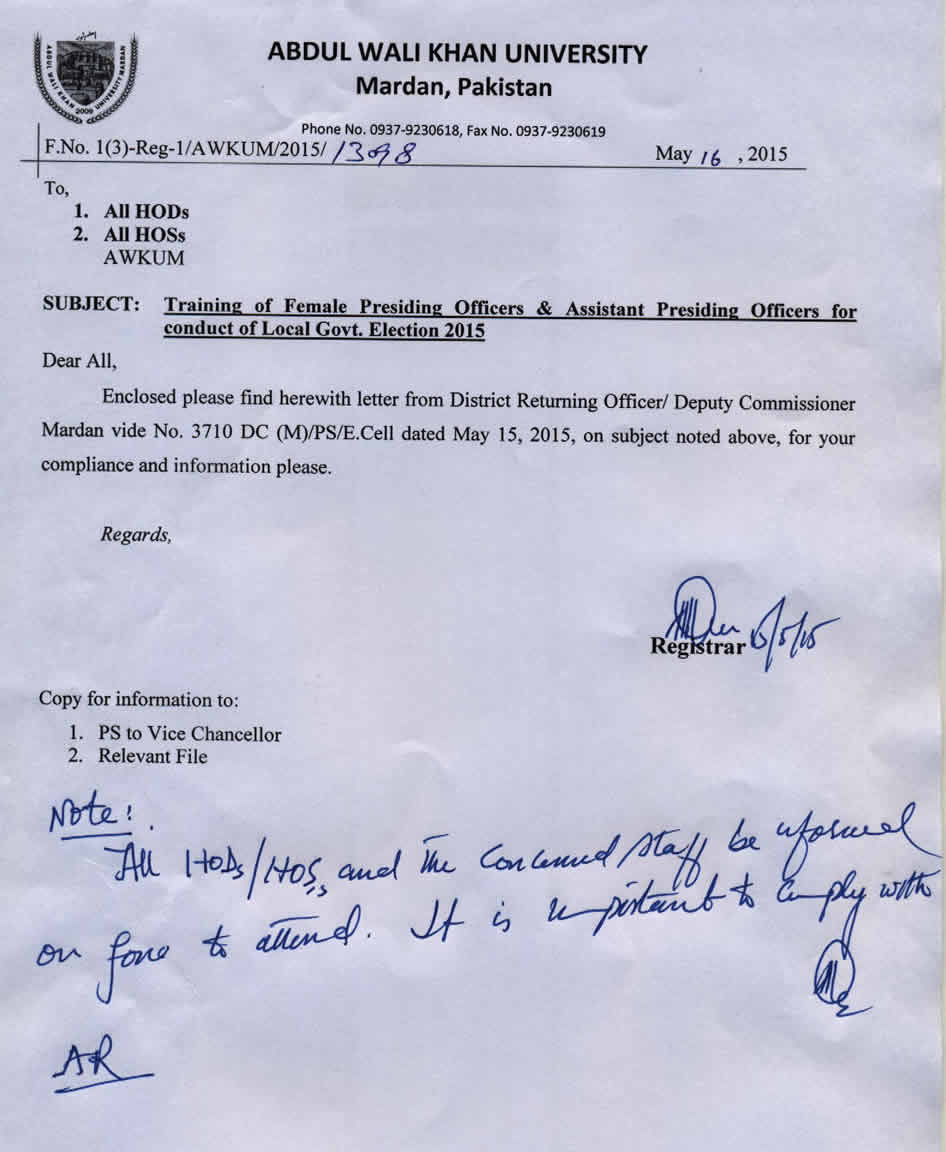 ABDUL WALI KHAN UNIVERSITY MARDAN
2009
ABDUL WALI KHAN UNIVERSITY
Mardan, Pakistan
Phone No. 0937-9230618, Fax No. 0937-9230619
F.No. 1(3)-Reg-1/AWKUM/2015/ 1398
May 16 , 2015
To,
1. All HODs
2. All HOSs
AWKUM
SUBJECT: Training of Female Presiding Officers & Assistant Presiding Officers for
conduct of Local Govt. Election 2015
Dear All,
Enclosed please find herewith letter from District Returning Officer/ Deputy Commissioner
Mardan vide No. 3710 DC (M)/PS/E.Cell dated May 15, 2015, on subject noted above, for your
compliance and information please.
Regards,
Registrar
Copy for information to:
1. PS to Vice Chancellor
2. Relevant File
Note:
All HODs/HOSs and the concerned staff be informed
on fone to attend. It is important to comply with
AR